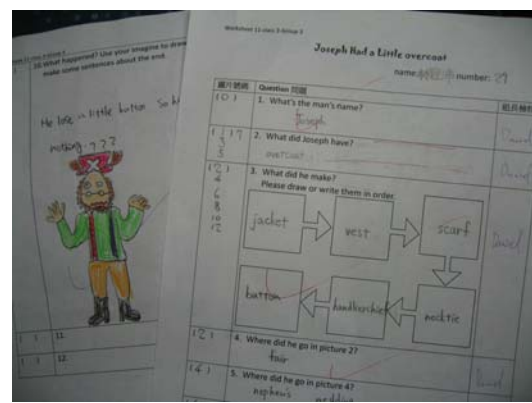 10. What happened? Use your imagine to draw
make some sentences about the end.
He lose a little button So h
nothing.???
( ) 11.
( ) 12.
Worksheet 11-class 3-Group 3
Joseph Had a Little overcoat
name: number: 29
圖片號碼 Question 問題
(0) 1. What's the man's name?
Joseph
2. What did Joseph have?
overcoat
David
(2) 3. What did he make?
4 Please draw or write them in order.
6
8
10
12
jacket vest scarf
David
button handkerchief necktie
(2) 4. Where did he go in picture 2?
fair
David
(4) 5. Where did he go in picture 4?
nephew's wedding